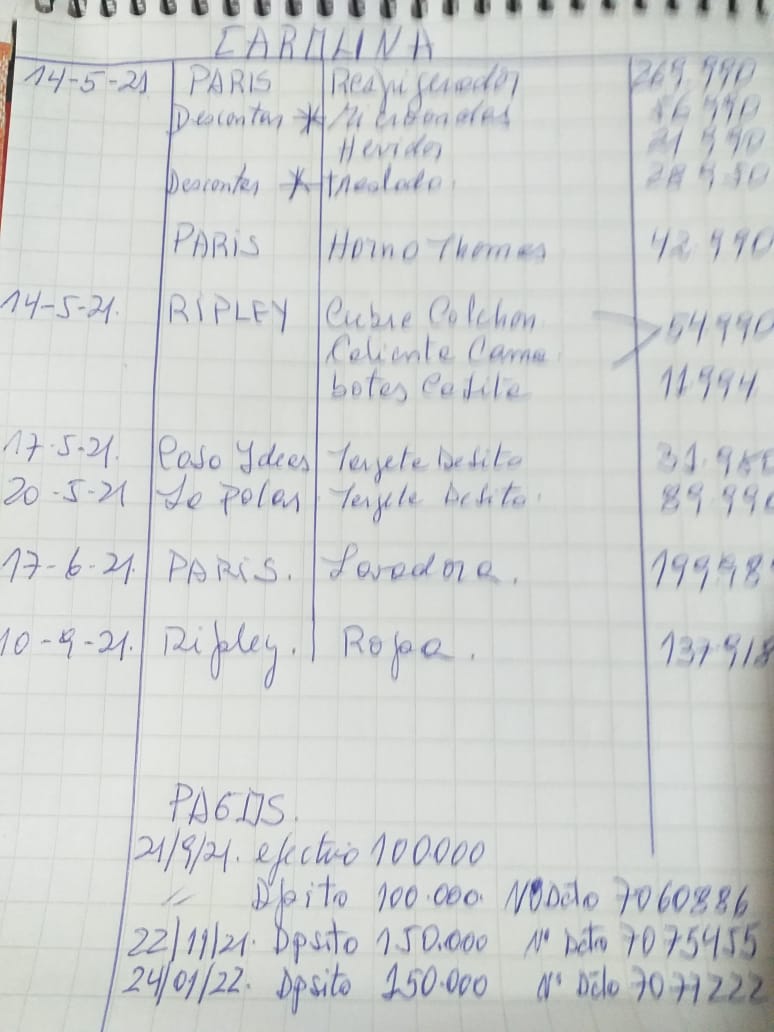 CAROLINA
14-5-21 PARIS Refrigerador 269.990
Descontar * Microondas 56 990
Hervidor 21 990
Descontar * traslado.
PARIS Horno Thomas 42.990
14-5-21. RIPLEY Cubre Colchon 54990
Caliente Cama
botas Casita 11994
17-5-21. Casa Ideas Tarjeta Debito
20-5-21 La Polar Tarjeta Debito. 89.990
17-6-21. PARIS. Lavadora. 19998
10-9-21. Ripley. Ropa. 137918
PAGOS.
21/9/21. efectivo 100.000
" Dpsito 100.000. Nº Dcto 7060886
22/11/21. Dpsito 150.000 Nº Dcto 7075455
24/01/22. Dpsito 150.000 Nº Dcto 7077222